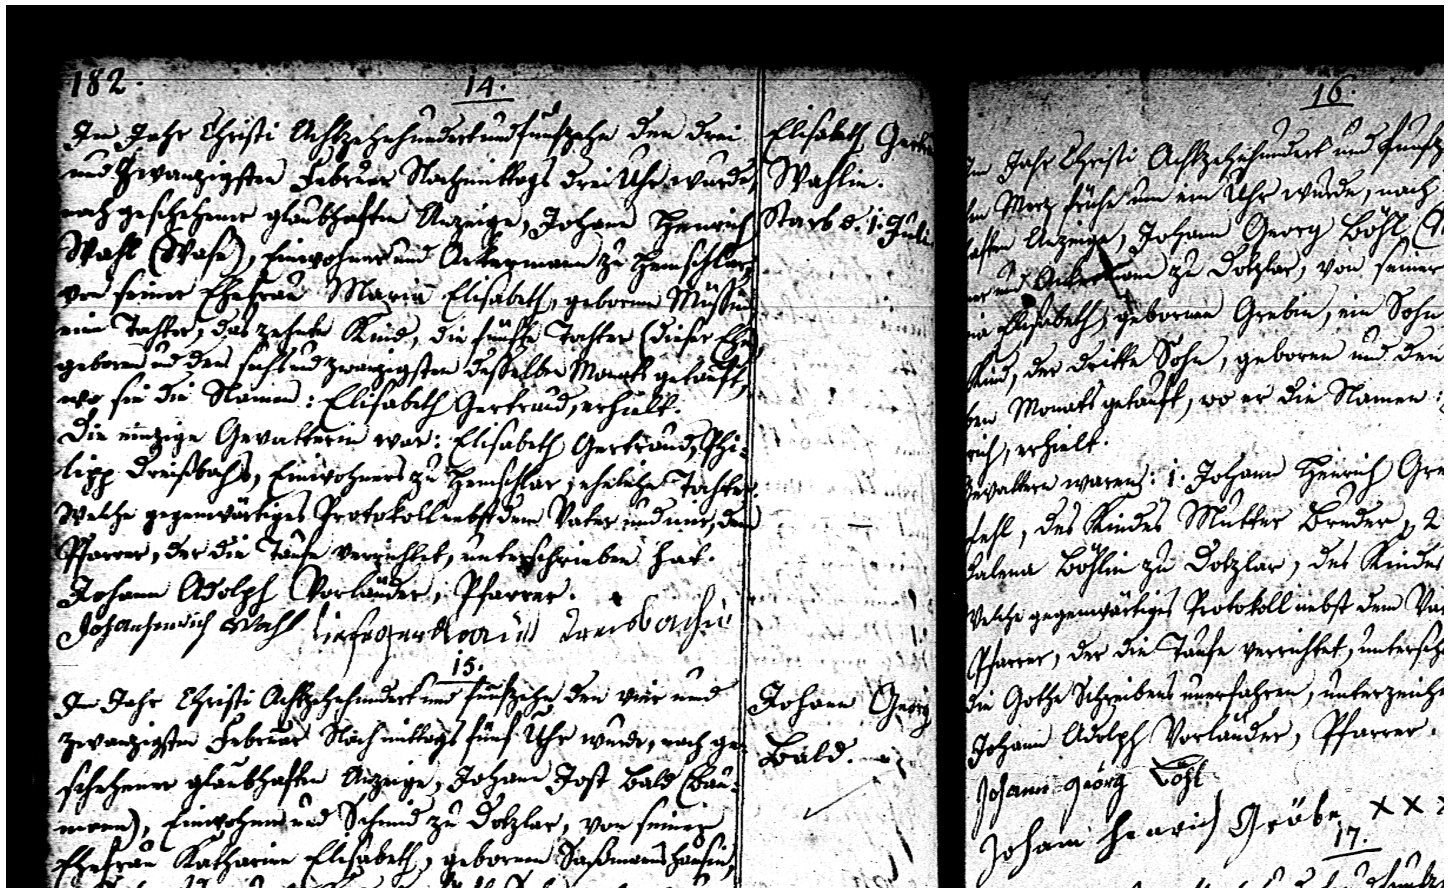 182.
14.
Im Jahr Christi Achtzehnhundertundfünfzehn den drei
und zwanzigsten Februar Nachmittags drei Uhr wurde,
nach geschehener glaubhaften Anzeige, Johann Henrich
Wahl (Wase), Einwohner und Ackermann zu Hemschlar,
von seiner Ehefrau Maria Elisabeth, geborenen
eine Tochter, das zehnte Kind, die fünfte Tochter (dieser Ehe)
geboren und den sechs und zwanzigsten desselben Monats getauft,
wo sie die Namen: Elisabeth Gertraud, erhielt.
Die einzige Gevatterin war: Elisabeth Gertraud, Phi-
lipp Dreisbachs, Einwohners zu Hemschlar, eheliche Tochter.
Welche gegenwärtiges Protokoll nebst dem Vater und mir, dem
Pfarrer, der die Taufe verrichtet, unterschrieben hat.
Johann Adolph Vorländer, Pfarrer.
Johanhenrich Wahl
Elisabeth Gertr
Wahlin.
Starb d. 1. Juli
15.
Im Jahr Christi Achtzehnhundert und fünfzehn den vier und
zwanzigsten Februar Nachmittags fünf Uhr wurde, nach ge-
schehener glaubhaften Anzeige, Johann Jost Bald (Bau-
mann), Einwohner und Schmid zu Dotzlar, von seiner
Ehefrau Katharine Elisabeth, geborenen Saßmannshausin,
Johann Georg
Bald.
16.
Im Jahr Christi Achtzehnhundert und fünfz
Merz frühe um ein Uhr wurde, nach
haften Anzeige, Johann Georg Böhl
und Ackermann zu Dotzlar, von seiner
Elisabeth, gebornen Grebin, ein Sohn
Kind, der dritte Sohn, geboren und den
ben Monats getauft, wo er die Namen:
rich, erhielt.
Gevattern waren: 1. Johann Henrich Gre
fehl, des Kindes Mutter Bruder, 2
dalena Böhlin zu Dotzlar, des Kindes
Welche gegenwärtiges Protokoll nebst dem Va
Pfarrer, der die Taufe verrichtet, unterschr
die Gothe Schreibens unerfahren, unterzeich
Johann Adolph Vorländer, Pfarrer.
Johann Georg Böhl
Johann Henrich Gröbe XXX
17.